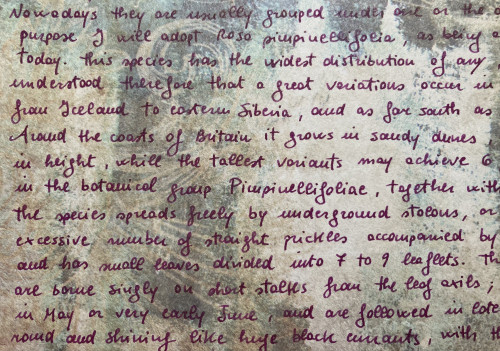 Nowadays they are usually grouped under one or the o
purpose I will adopt Rosa pimpinellifolia, as being a
today. This species has the widest distribution of any
understood therefore that a great variations occur in
from Iceland to eastern Siberia, and as far south as
Around the coasts of Britain it grows in sandy dunes
in height, while the tallest variants may achieve 6
in the botanical group Pimpinellifoliae, together with
the species spreads freely by underground stolons, or
excessive number of straight prickles accompanied by
and has small leaves divided into 7 to 9 leaflets. Th
are borne singly on short stalks from the leaf axils;
in May or very early June, and are followed in late
round and shining like huge black currants, with th